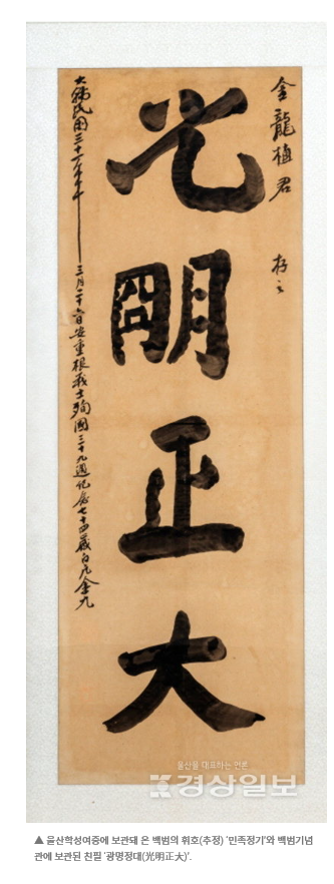 金龍植君 存之
光朙正大
大韓民國三十一年三月二十六日安重根義士殉國三十九週紀念七十四歲白凡金九
울산을 대표하는 언론
경상일보
▲ 울산학성여중에 보관돼 온 백범의 휘호(추정) '민족정기'와 백범기념
관에 보관된 친필 '광명정대(光明正大)'.